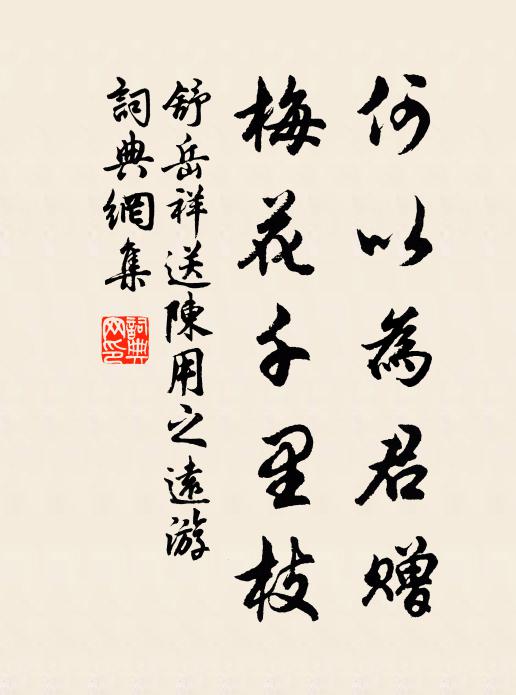 何以為君贈
梅花千里枝
舒岳祥送陳用之遠游
詞典網集
詞典
网印